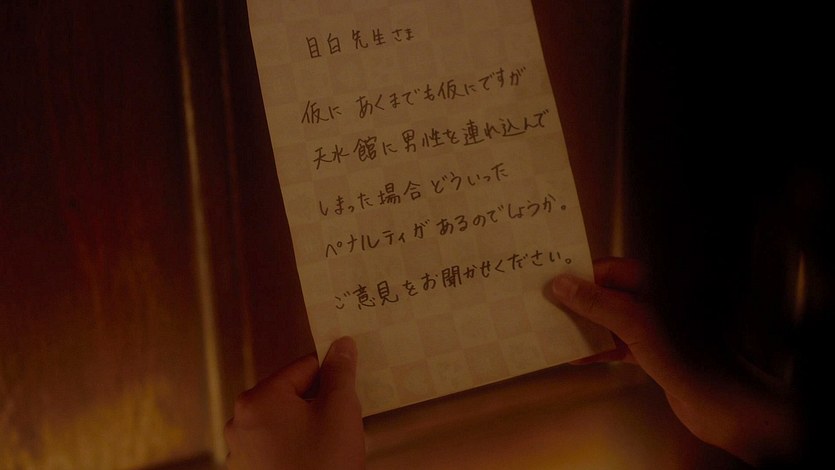 目白先生さま
仮に あくまでも仮にですが
天水館に男性を連れ込んで
しまった場合どういった
ペナルティがあるのでしょうか。
ご意見をお聞かせください。